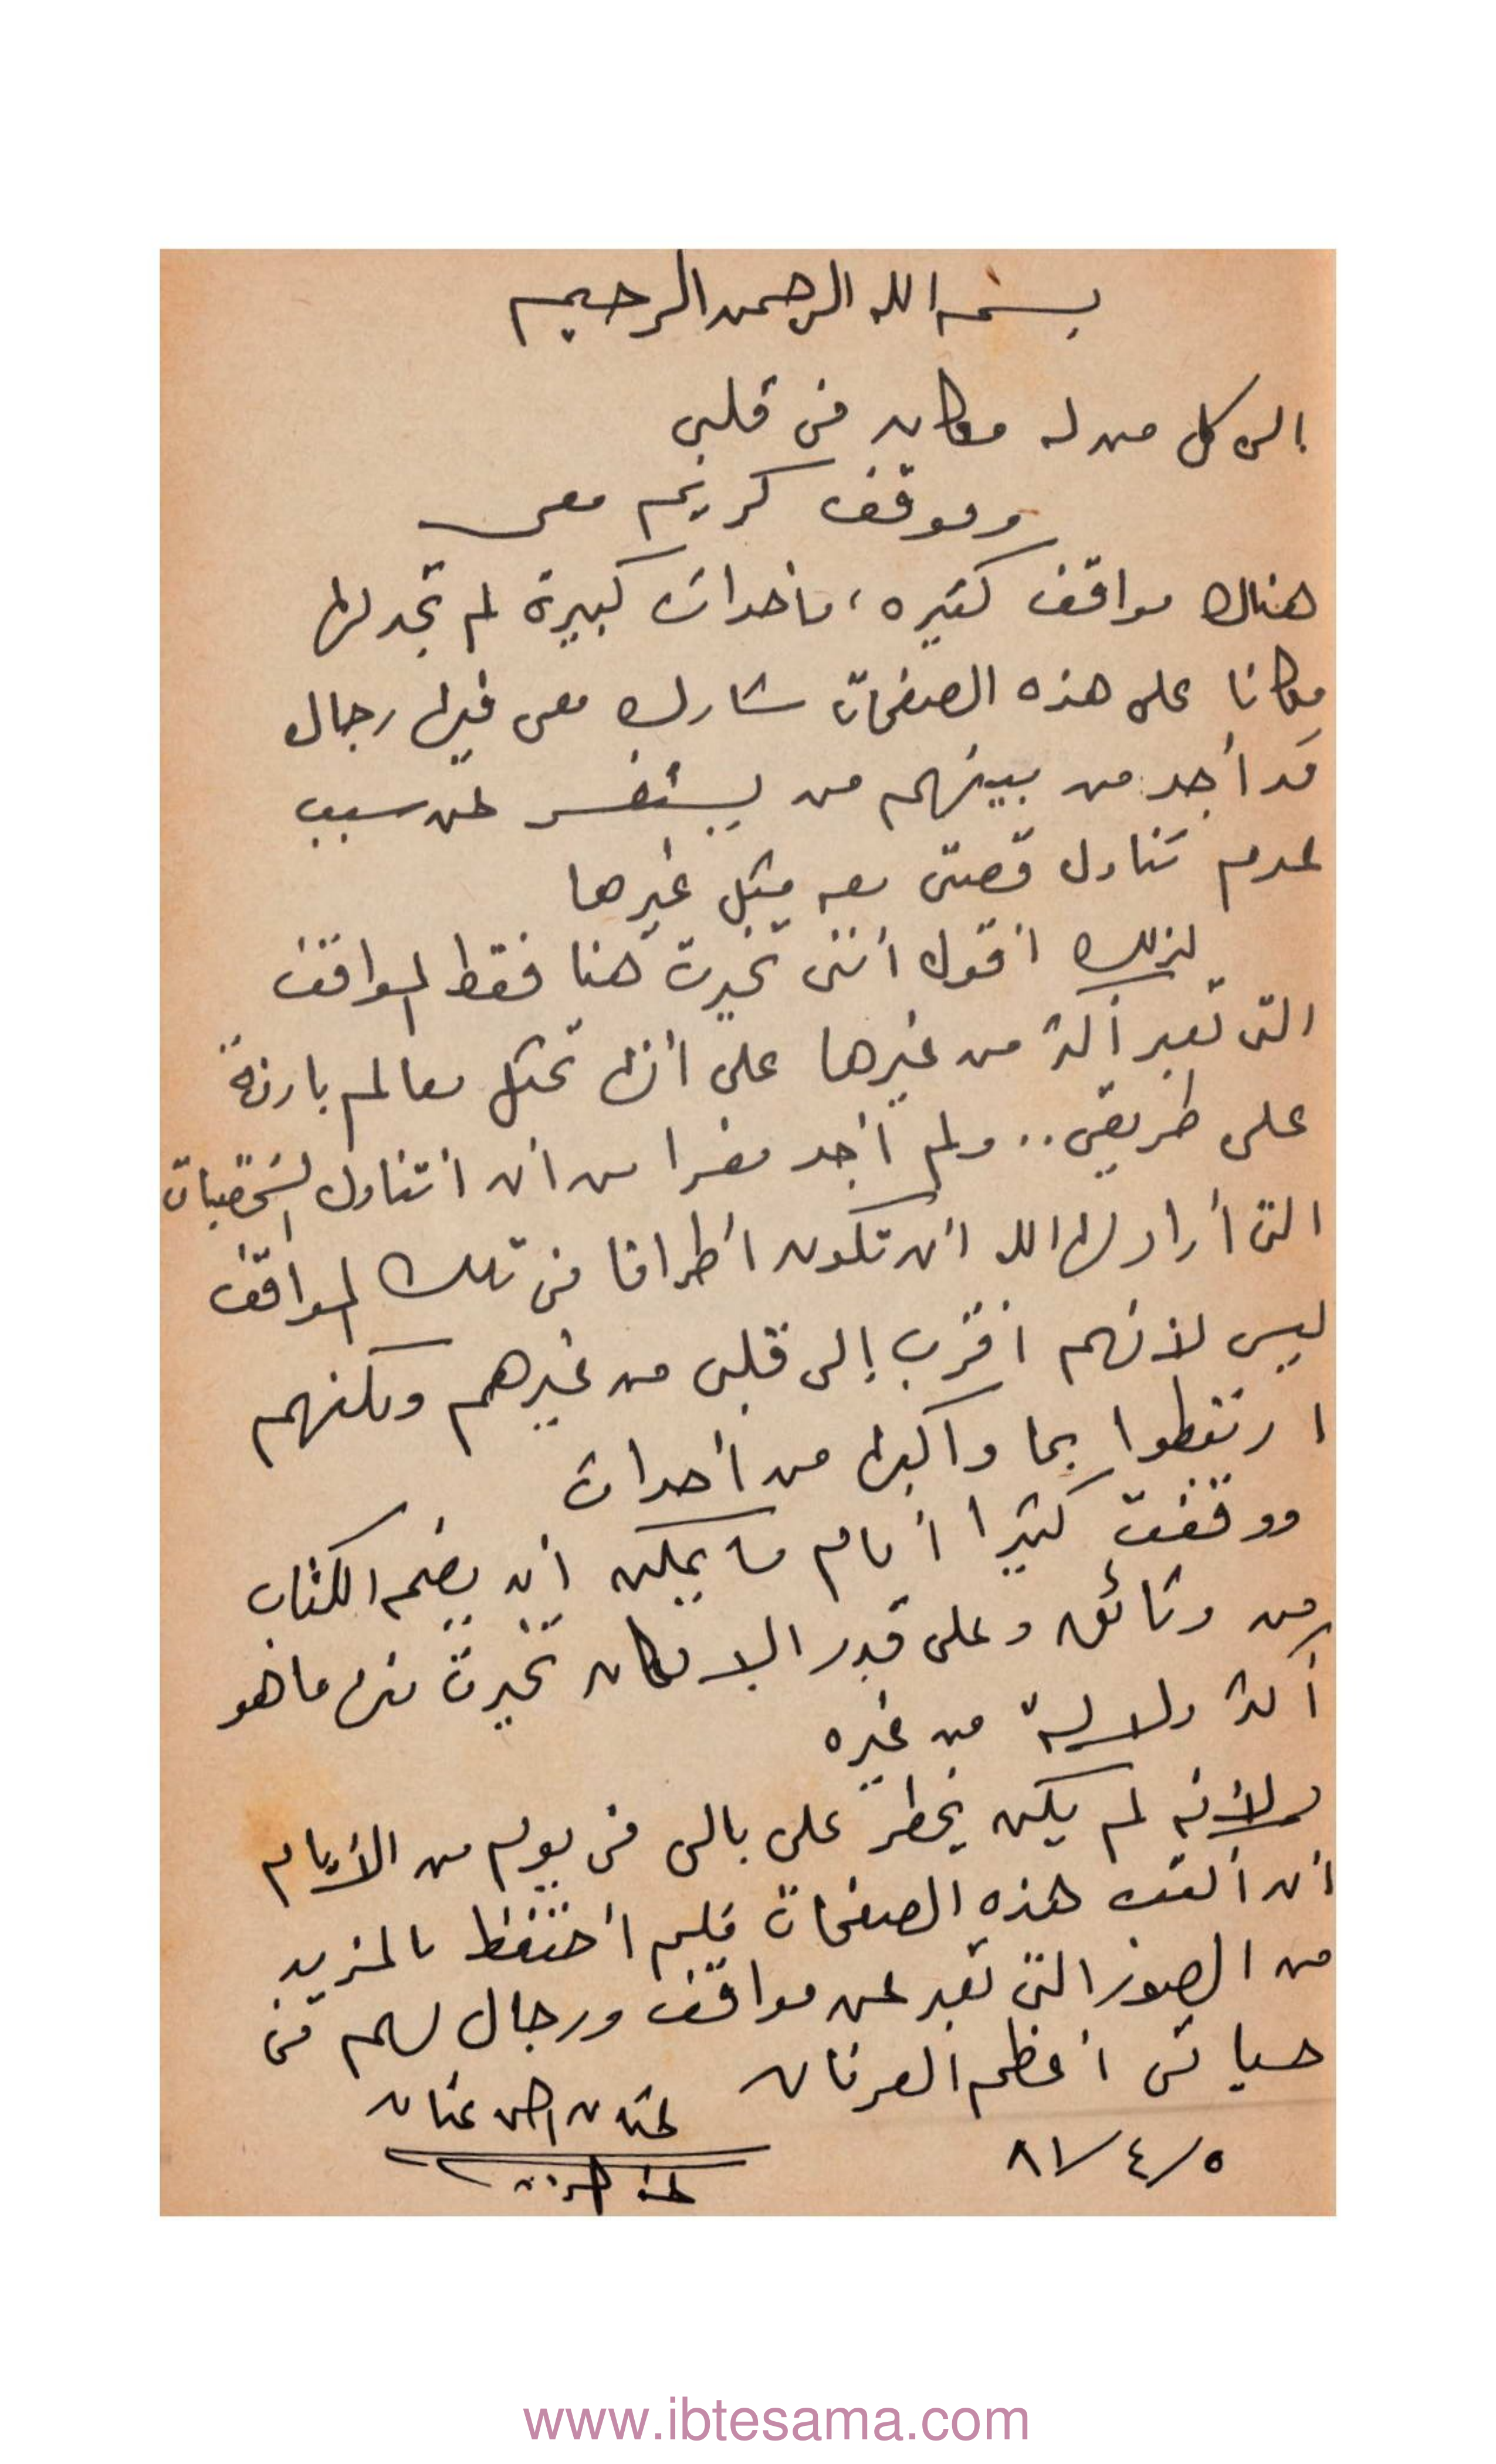 بسم الله الرحمن الرحيم
الى كل من له مكان فى قلبى
وموقف كريم معى
هناك مواقف كثيره، وأحداث كبيرة لم تجد لها
مكانا على هذه الصفحات شارك معى فيها رجال
قد أجد من بينهم من يستفسر عن سبب
عدم تناول قصتى معه مثل غيرها
لذلك أقول أننى تخيرت هنا فقط المواقف
التى تعبر أكثر من غيرها على أنها تمثل معالم بارزة
على طريقى .. ولم أجد مفرا من ان اتناول الشخصيات
التى أراد لها الله ان تكون أطرافا فى تلك المواقف
ليس لأنهم أقرب إلى قلبى من غيرهم ولكنهم
ارتبطوا بما واكبها من أحداث
ووقفت كثيرا أمام ما يمكن أن يضم الكتاب
من وثائق وعلى قدر الامكان تخيرت منها ما هو
أكثر دلالة من غيره
ولأنه لم يكن يخطر على بالى فى يوم من الأيام
ان أكتب هذه الصفحات فلم أحتفظ بالمزيد
من الصور التى تعبر عن مواقف ورجال لهم فى
حياتى أعظم العرفان
عثمان احمد عثمان
٥/٤/٨١
www.ibtesama.com